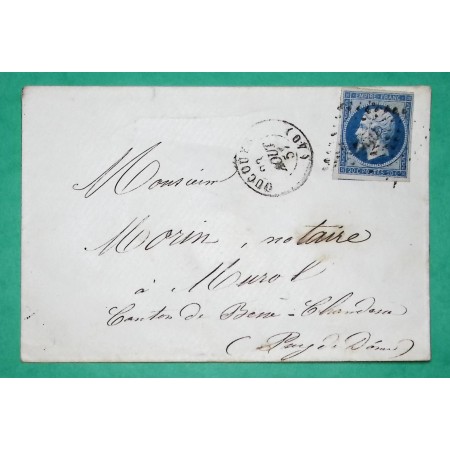 EMPIRE FRANC
20 C. POSTES 20 C.
(40)
AOUT
57
Monsieur
Morin, notaire
à Murol
Canton de Besse-Chandesse
(Puy de Dôme)